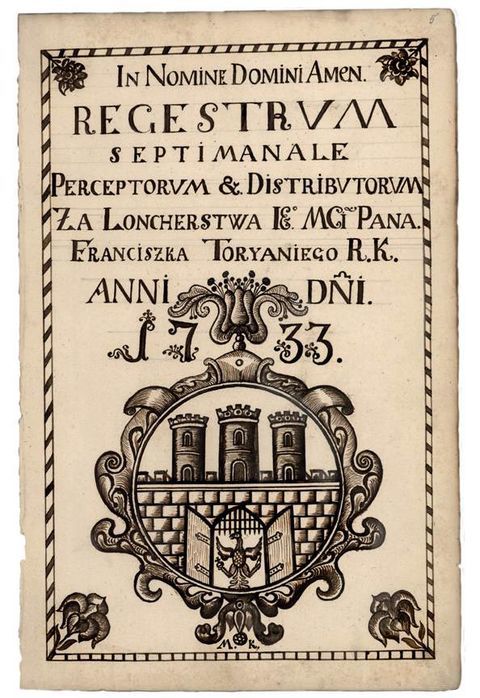 In Nomine Domini Amen.
REGESTRVM
SEPTIMANALE
PERCEPTORVM & DISTRIBVTORVM
ZA LONCHERSTWA IEº MCIº PANA.
FRANCISZKA TORYANIEGO R.K.
ANNI DÑI.
1733.
M. K.
6